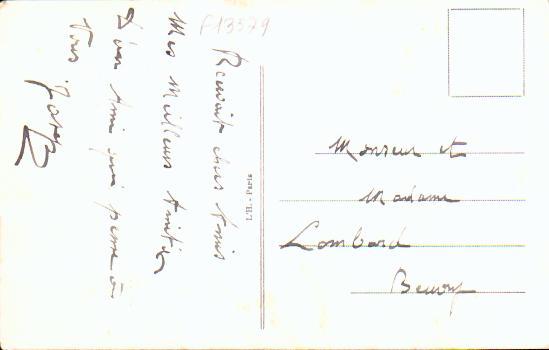 F13579
Recevait chers Amis
Mes Meilleurs Amitiés
D'un Ami qui pense à
Vous
L'H. - Paris
Monsieur et
Madame
Lombard